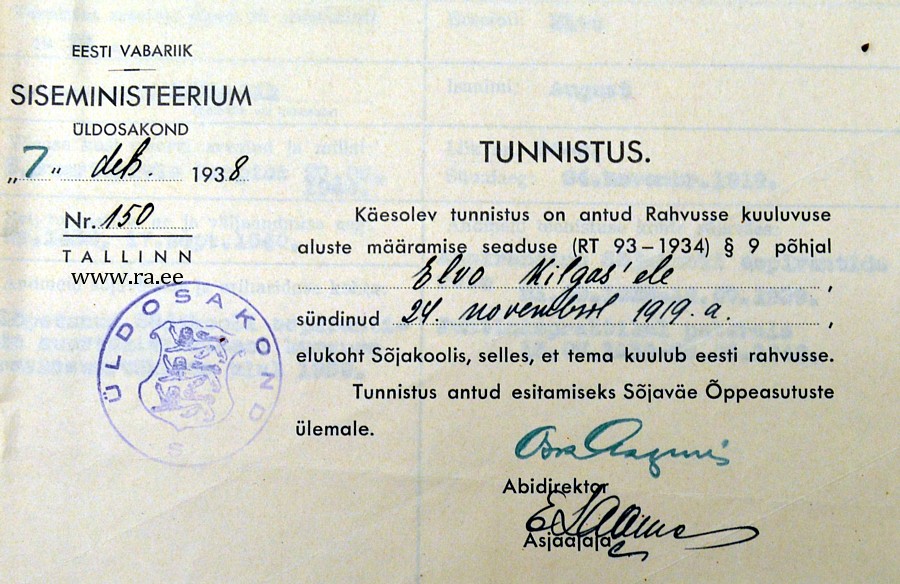 EESTI VABARIIK
SISEMINISTEERIUM
ÜLDOSAKOND
"7" dets. 1938
Nr. 150
TALLINN
www.ra.ee
ÜLDOSAKOND
S
TUNNISTUS.
Käesolev tunnistus on antud Rahvusse kuuluvuse
aluste määramise seaduse (RT 93–1934) § 9 põhjal
Elvo Kilgas'ele,
sündinud 24 novembril 1919.a.,
elukoht Sõjakoolis, selles, et tema kuulub eesti rahvusse.
Tunnistus antud esitamiseks Sõjaväe Õppeasutuste
ülemale.
Abidirektor
Asjaajaja